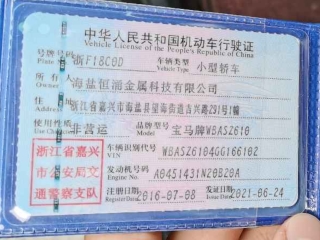 中华人民共和国机动车行驶证
Vehicle License of the People's Republic of China
号牌号码 浙F18C0D 车辆类型 小型轿车
Plate No. Vehicle Type
所有人 海盐恒浦金属科技有限公司
Owner
住址 浙江省嘉兴市海盐县望海街道吉兴路291号1幢
非营运 品牌型号 宝马牌WBA5Z610
Model
浙江省嘉兴
市公安局交
通警察支队
车辆识别代号 WBASZ6104GG166102
VIN
发动机号码 A0451431N20B20A
Engine No.
注册日期 2016-07-08 发证日期 2021-06-24